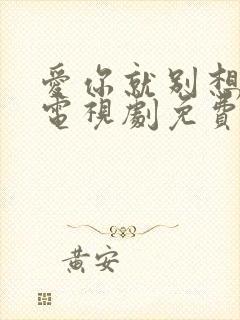 愛你就別想
電視劇免費
黃安